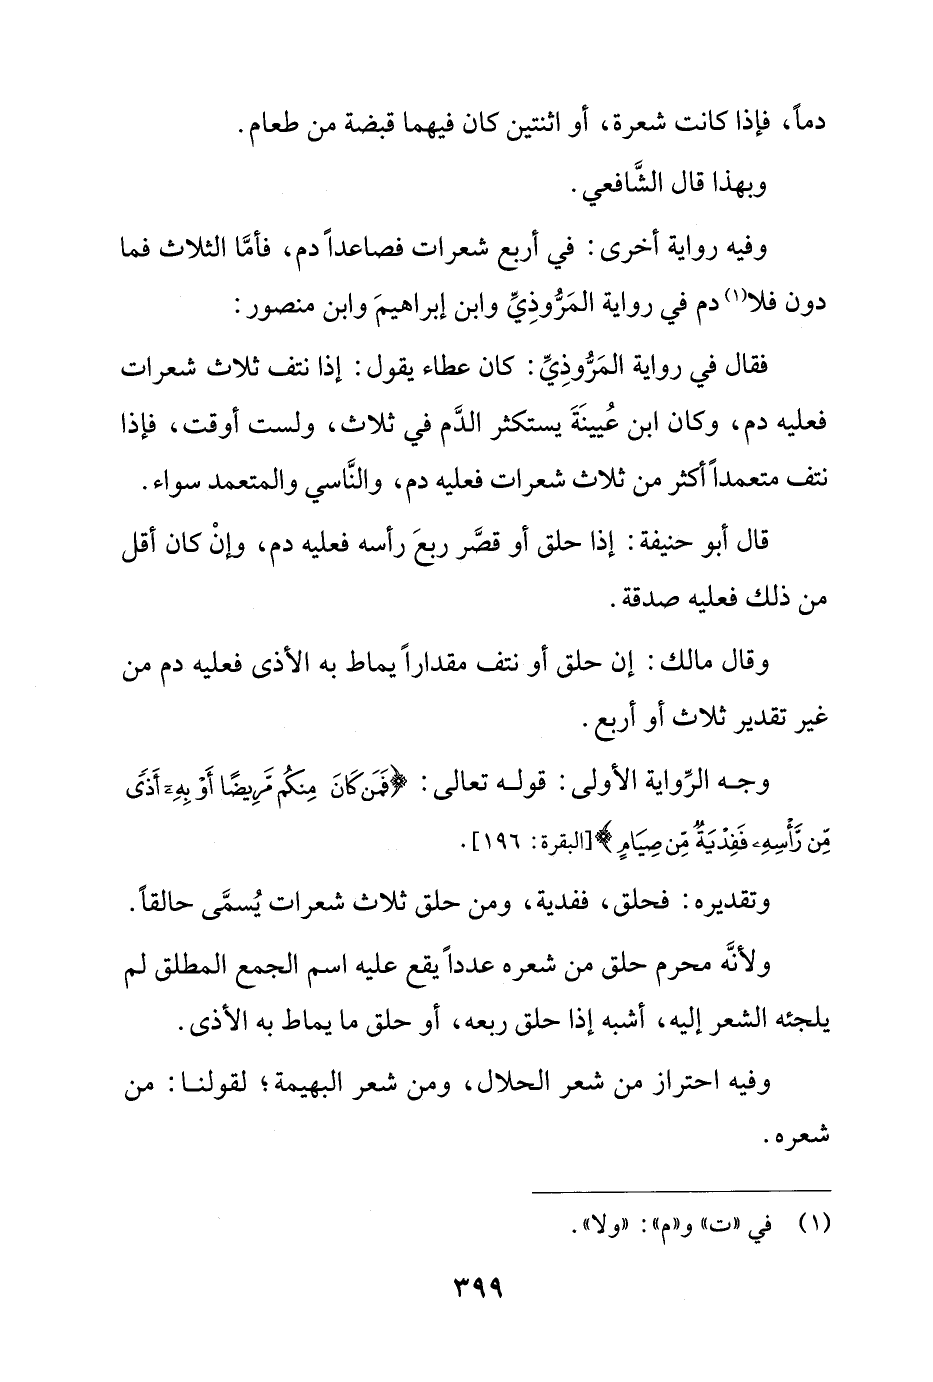 دماً، فإذا كانت شعرة، أو اثنتين كان فيهما قبضة من طعام.
وبهذا قال الشَّافعي.
وفيه رواية أخرى: في أربع شعرات فصاعداً دم، فأمَّا الثلاث فما
دون فلا(١) دم في رواية المَرُّوذِيِّ وابن إبراهيمَ وابن منصور:
فقال في رواية المَرُّوذِيِّ: كان عطاء يقول: إذا نتف ثلاث شعرات
فعليه دم، وكان ابن عُيينَةَ يستكثر الدَّم في ثلاث، ولست أوقت، فإذا
نتف متعمداً أكثر من ثلاث شعرات فعليه دم، والنَّاسي والمتعمد سواء.
قال أبو حنيفة: إذا حلق أو قصَّر ربعَ رأسه فعليه دم، وإنْ كان أقل
من ذلك فعليه صدقة.
وقال مالك: إن حلق أو نتف مقداراً يماط به الأذى فعليه دم من
غير تقدير ثلاث أو أربع.
وجه الرِّواية الأولى: قوله تعالى: ﴿فَمَن كَانَ مِنكُم مَّرِيضًا أَوْ بِهِۦٓ أَذًى
مِّن رَّأْسِهِۦ فَفِدْيَةٌ مِّن صِيَامٍ﴾ [البقرة: ١٩٦].
وتقديره: فحلق، ففدية، ومن حلق ثلاث شعرات يُسمَّى حالقاً.
ولأنَّه محرم حلق من شعره عدداً يقع عليه اسم الجمع المطلق لم
يلجئه الشعر إليه، أشبه إذا حلق ربعه، أو حلق ما يماط به الأذى.
وفيه احتراز من شعر الحلال، ومن شعر البهيمة؛ لقولنا: من
شعره.
(١) في «ت» و«م»: «ولا».
٣٩٩